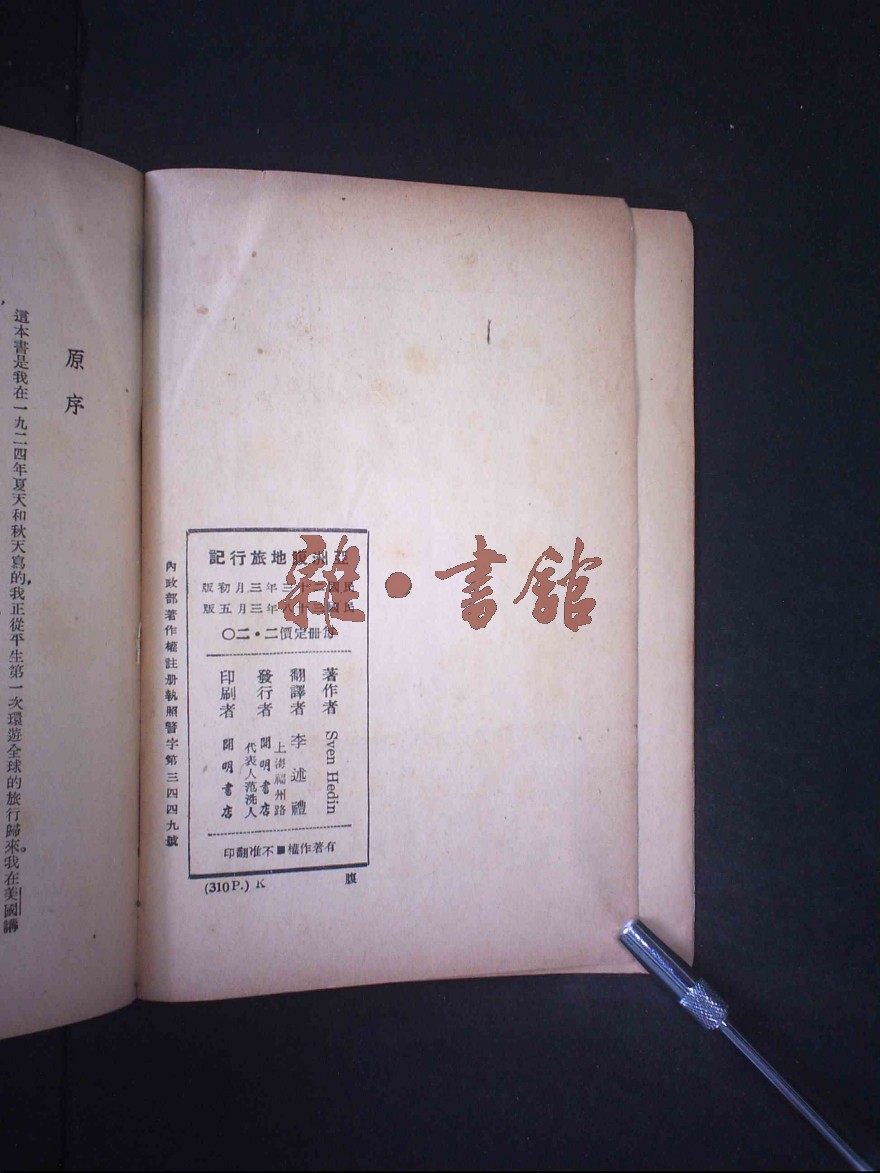 亞洲腹地旅行記
民國二十三年三月初版
民國三十八年三月五版
每冊定價二·二〇
著作者 Sven Hedin
翻譯者 李述禮
發行者 上海福州路
開明書店
代表人范洗人
印刷者 開明書店
有著作權■不准翻印
(310P.) K 腹
內政部著作權註册執照警字第三四四九號
原序
這本書是我在一九二四年夏天和秋天寫的，我正從平生第一次環遊全球的旅行歸來。我在美國講
雜·書館